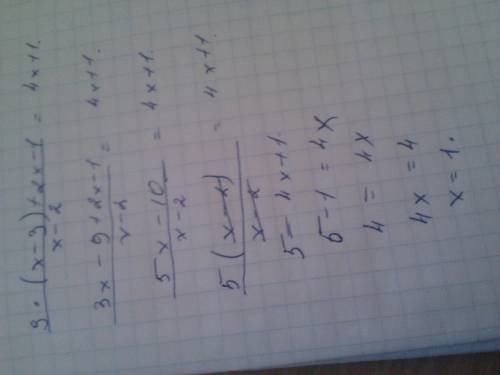 3·(x-3)+2x-1 / x-2 = 4x+1.
3x-9+2x-1 / x-2 = 4x+1.
5x-10 / x-2 = 4x+1.
5(x-2) / x-2 = 4x+1.
5=4x+1.
5-1=4x
4=4x
4x=4
x=1.